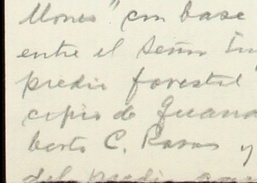 Mones" con base
entre el Señor
predio forestal
cipio de Juana
berto C. Rosas y
del predio